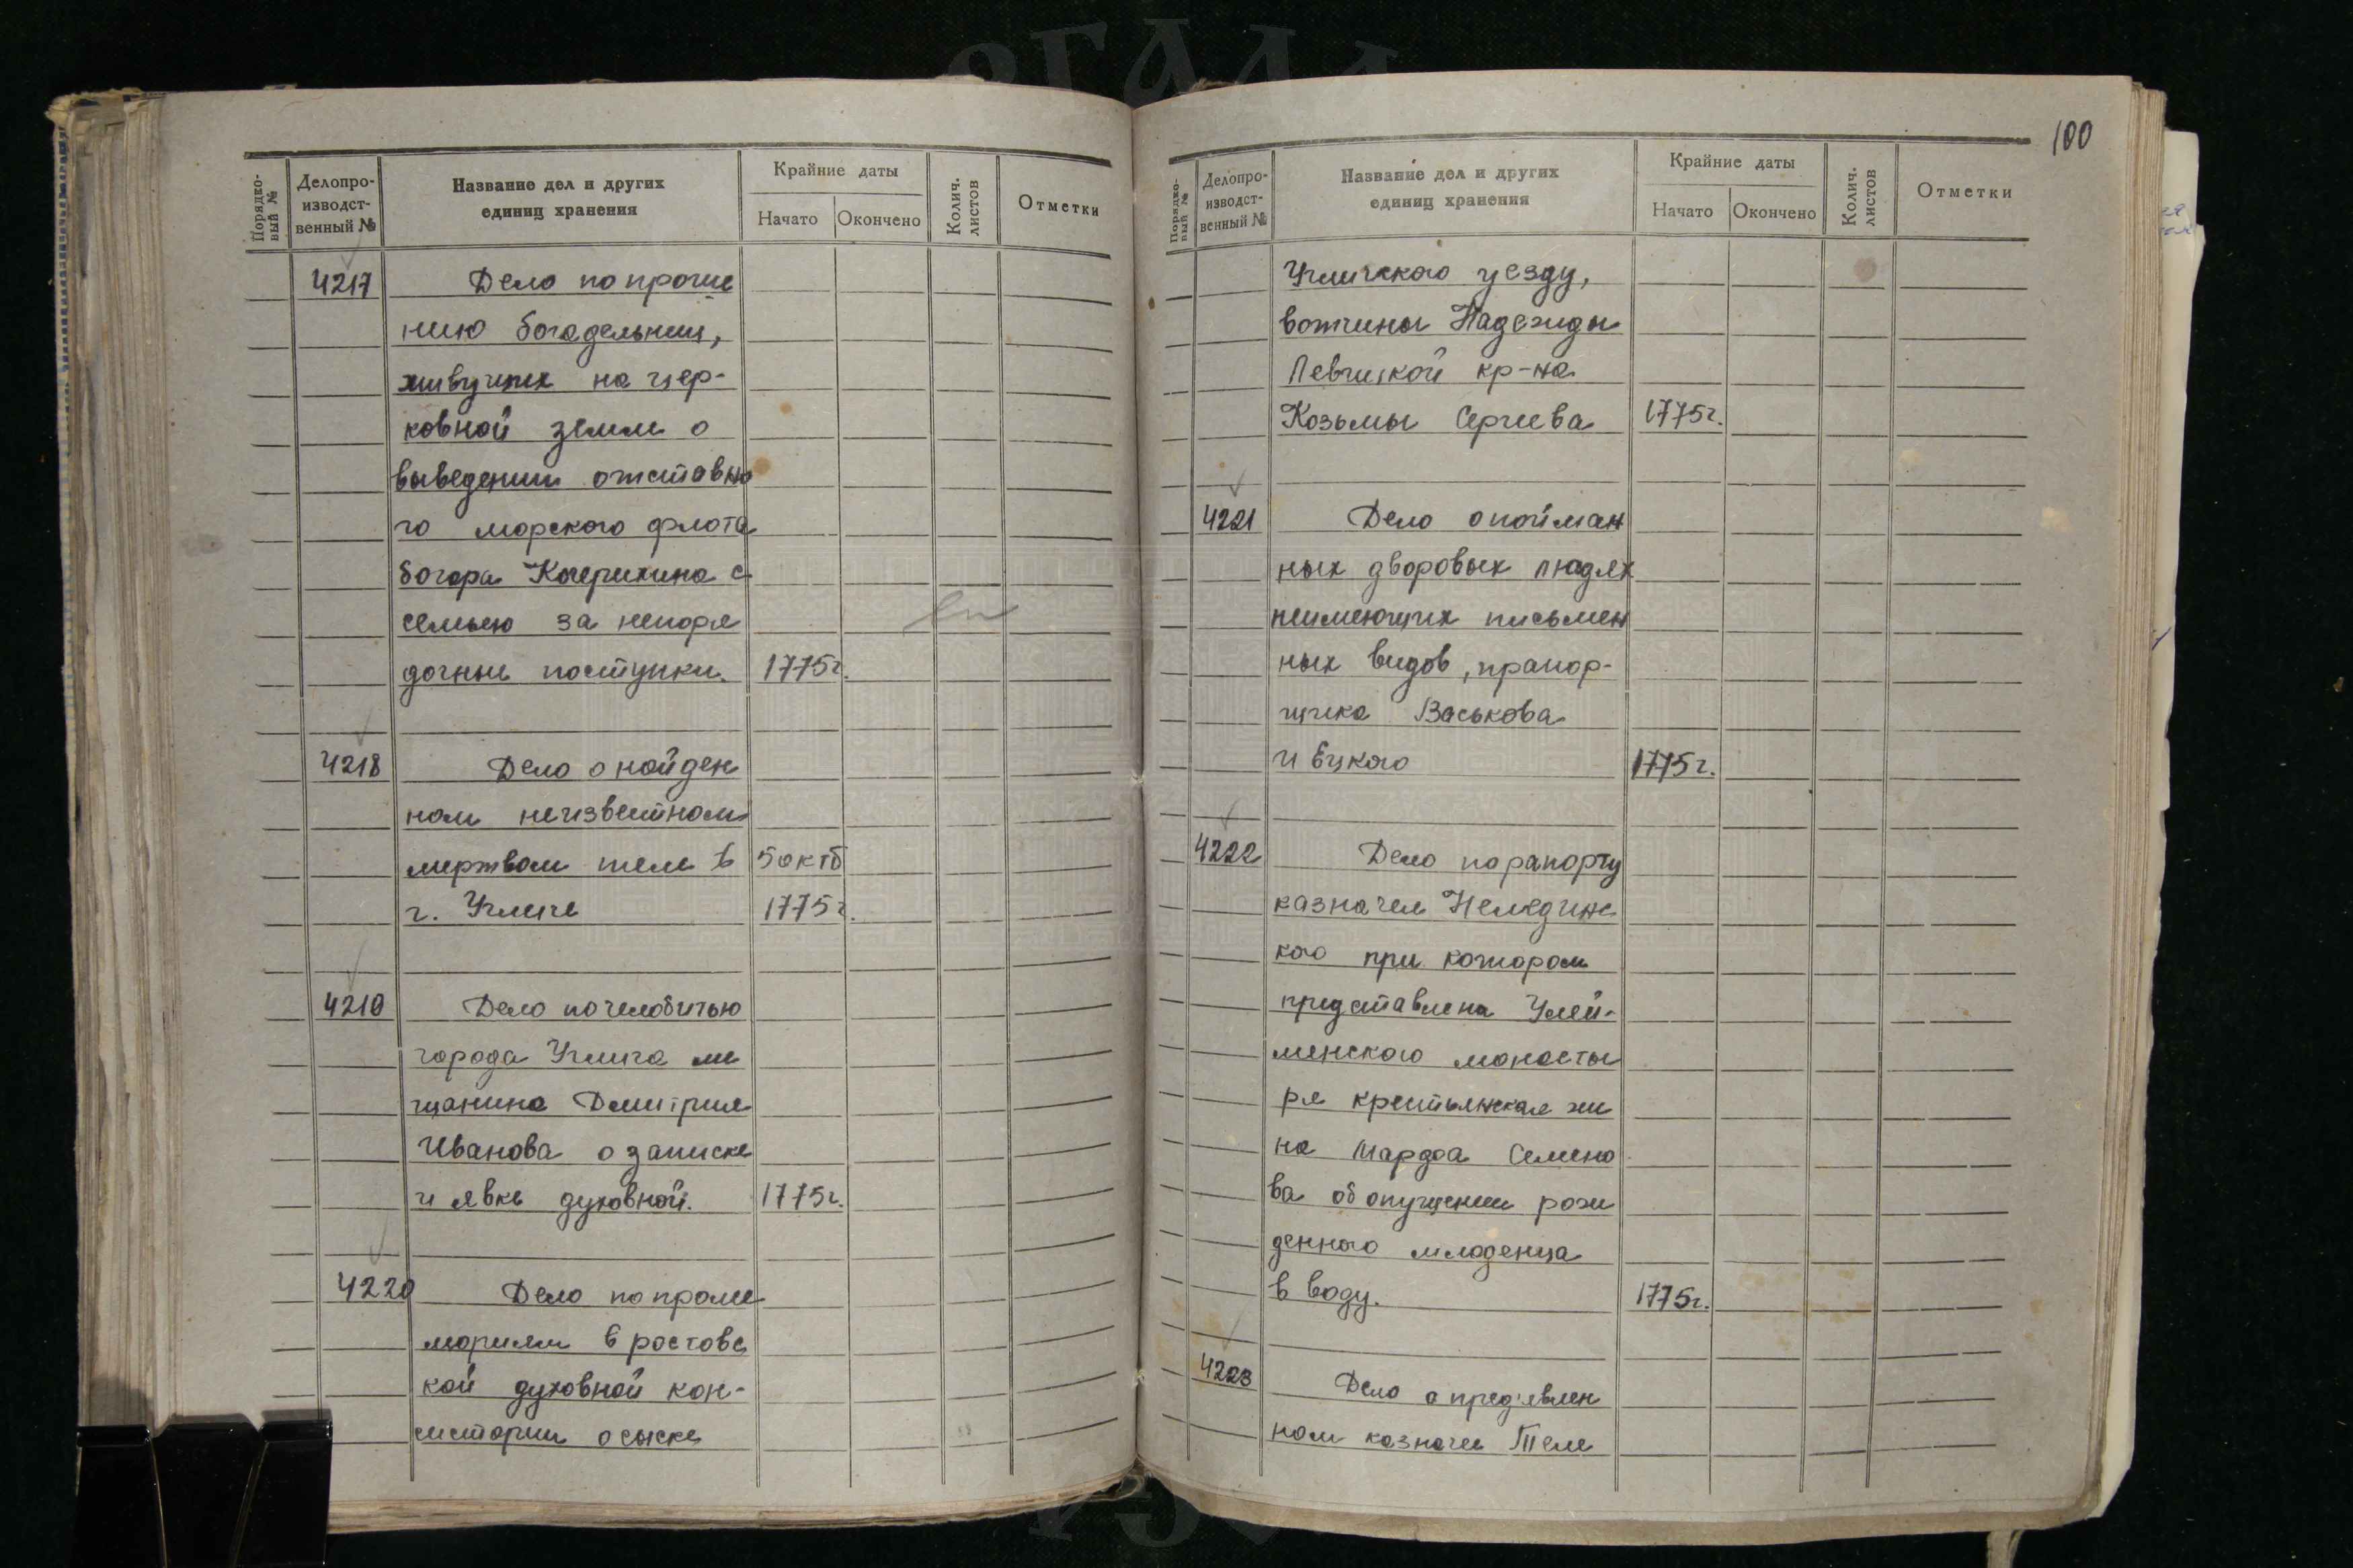 100
Порядко-
вый №
Делопро-
изводст-
венный №
Название дел и других
единиц хранения
Крайние даты
Начато
Окончено
Колич.
листов
Отметки
4217 Дело по проше
нию богадельниц,
живущих на цер-
ковной земли о
выведении отставно
го морского флота
богора Кочерихина с
семьею за непоря
дочные поступки. 1775г.
4218 Дело о найден
ном неизвестном
мертвом теле в 5 октб
г. Угличе 1775г.
4219 Дело по челобитью
города Углича ме
щанина Дмитрия
Иванова о записке
и явке духовной. 1775г.
4220 Дело по проме
мориям в ростовс
кой духовной кон-
систории о сыске
Порядко-
вый №
Делопро-
изводст-
венный №
Название дел и других
единиц хранения
Крайние даты
Начато
Окончено
Колич.
листов
Отметки
Угличского уезду,
вотчины Надежды
Левшиской кр-на
Козьмы Сергеева 1775г.
4221 Дело о пойман
ных дворовых людях
неимеющих письмен
ных видов, прапор-
щика Васькова
и Ецкого 1775г.
4222 Дело по рапорту
казначея Нелединс
кого при котором
представлена Улей-
менского монасты
ря крестьянская же
на Марфа Семено
ва об опущении рож
денного младенца
в воду. 1775г.
4223 Дело о пред'явлен
ном казначее Теле